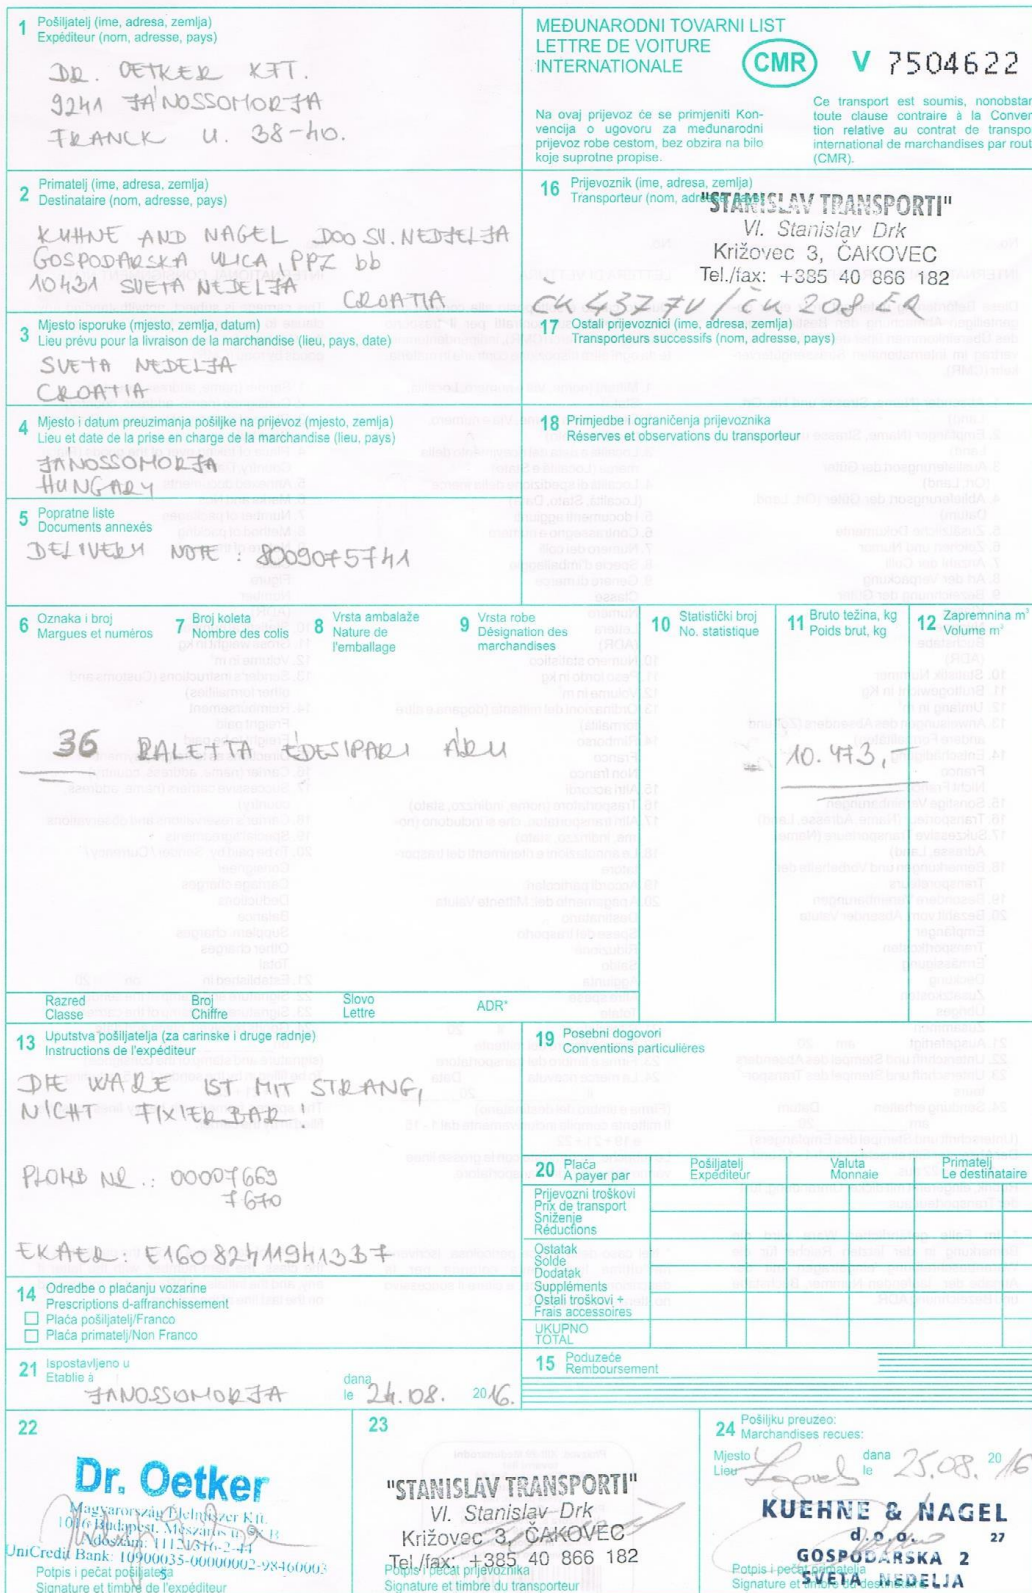 1 Pošiljatelj (ime, adresa, zemlja)
Expéditeur (nom, adresse, pays)
DR. OETKER KFT.
9241 JÁNOSSOMORJA
FRANCK U. 38-40.
MEĐUNARODNI TOVARNI LIST
LETTRE DE VOITURE
INTERNATIONALE
CMR
V 7504622
Na ovaj prijevoz će se primjeniti Kon-
vencija o ugovoru za međunarodni
prijevoz robe cestom, bez obzira na bilo
koje suprotne propise.
Ce transport est soumis, nonobstan
toute clause contraire à la Conven
tion relative au contrat de transpo
international de marchandises par rout
(CMR).
2 Primatelj (ime, adresa, zemlja)
Destinataire (nom, adresse, pays)
KUHNE AND NAGEL DOO SV. NEDJELJA
GOSPODARSKA ULICA, PPZ bb
10431 SVETA NEJELJA
CROATIA
16 Prijevoznik (ime, adresa, zemlja)
Transporteur (nom, adresse, pays)
"STANISLAV TRANSPORTI"
Vl. Stanislav Drk
Križovec 3, ČAKOVEC
Tel./fax: +385 40 866 182
ČK 437 7V / ČK 208 ER
3 Mjesto isporuke (mjesto, zemlja, datum)
Lieu prévu pour la livraison de la marchandise (lieu, pays, date)
SVETA NEDELJA
CROATIA
17 Ostali prijevoznici (ime, adresa, zemlja)
Transporteurs successifs (nom, adresse, pays)
4 Mjesto i datum preuzimanja pošiljke na prijevoz (mjesto, zemlja)
Lieu et date de la prise en charge de la marchandise (lieu, pays)
JANOSSOMORJA
HUNGARY
18 Primjedbe i ograničenja prijevoznika
Réserves et observations du transporteur
5 Popratne liste
Documents annexés
DELIVERY NOTE : 8009075741
6 Oznaka i broj
Margues et numéros
7 Broj koleta
Nombre des colis
8 Vrsta ambalaže
Nature de
l'emballage
9 Vrsta robe
Désignation des
marchandises
10 Statistički broj
No. statistique
11 Bruto težina, kg
Poids brut, kg
12 Zapremnina m³
Volume m³
36 RALETTA ÉDESIPARI ÁRU
10.473,-
Razred
Classe
Broj
Chiffre
Slovo
Lettre
ADR*
13 Uputstva pošiljatelja (za carinske i druge radnje)
Instructions de l'expéditeur
DIE WARE IST MIT STRANG,
NICHT FIXIERBAR!
PLOMB NR.: 00007669
7670
EKAER: E160824119413B7
19 Posebni dogovori
Conventions particulières
20 Plaća
A payer par
Pošiljatelj
Expéditeur
Valuta
Monnaie
Primatelj
Le destinataire
Prijevozni troškovi
Prix de transport
Sniženje
Réductions
Ostatak
Solde
Dodatak
Suppléments
Ostali troškovi +
Frais accessoires
UKUPNO
TOTAL
14 Odredbe o plaćanju vozarine
Prescriptions d-affranchissement
Plaća pošiljatelj/Franco
Plaća primatelj/Non Franco
21 Ispostavljeno u
Etablie à
JANOSSOMORJA
dana
le 24.08. 2016.
15 Poduzeće
Remboursement
22
Dr. Oetker
Magyarország Élelmiszer Kft.
1016 Budapest, Mészáros u.
Adószám: 11121316-2-44
UniCredit Bank: 10900035-00000002-98460003
Potpis i pečat pošiljatelja
Signature et timbre de l'expéditeur
23
"STANISLAV TRANSPORTI"
Vl. Stanislav Drk
Križovec 3, ČAKOVEC
Tel./fax: +385 40 866 182
Potpis i pečat prijevoznika
Signature et timbre du transporteur
24 Pošiljku preuzeo:
Marchandises recues:
Mjesto
Lieu Zagreb
dana
le 25.08. 2016
KUEHNE & NAGEL
d.o.o. 27
GOSPODARSKA 2
SVETA NEDELJA
Potpis i pečat primatelja
Signature et timbre du